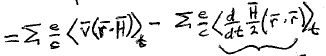 = Σ e/c ⟨v̄(r̄·H̄)⟩_t − Σ e/c ⟨d/dt H̄/2 (r̄·r̄)⟩_t